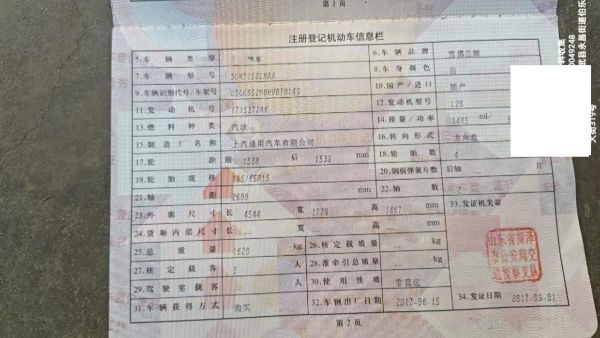 第 1 页
注册登记机动车信息栏
5.车辆类型 车
6.车辆品牌 雪佛兰牌
7.车辆型号
8.车身颜色 白
9.车辆识别代号/车架号
10.国产/进口 国产
11.发动机号
12.发动机型号 L2B
13.燃料种类 汽油
14.排量/功率 1485 ml/
15.制造厂名称 上汽通用汽车有限公司
16.转向形式 方向盘
17.轮距 前 1538 后 1539 mm
18.轮胎数 4
19.轮胎规格 195/65R15
20.钢板弹簧片数 后轴 片
21.轴距 2600 mm
22.轴数 2
23.外廓尺寸 长 4544 宽 1779 高 1467 mm
33.发证机关章
24.货厢内部尺寸 长 宽 高 mm
25.总质量 1620 kg
26.核定载质量 kg
27.核定载客 5 人
28.准牵引总质量 kg
29.驾驶室载客 人
30.使用性质 非营运
31.车辆获得方式 购买
32.车辆出厂日期 2017-06-15
34.发证日期 2017-09-01
山东省菏泽
市公安局交
通警察支队
第 2 页
0049248
县永昌街道伯乐
大街319号